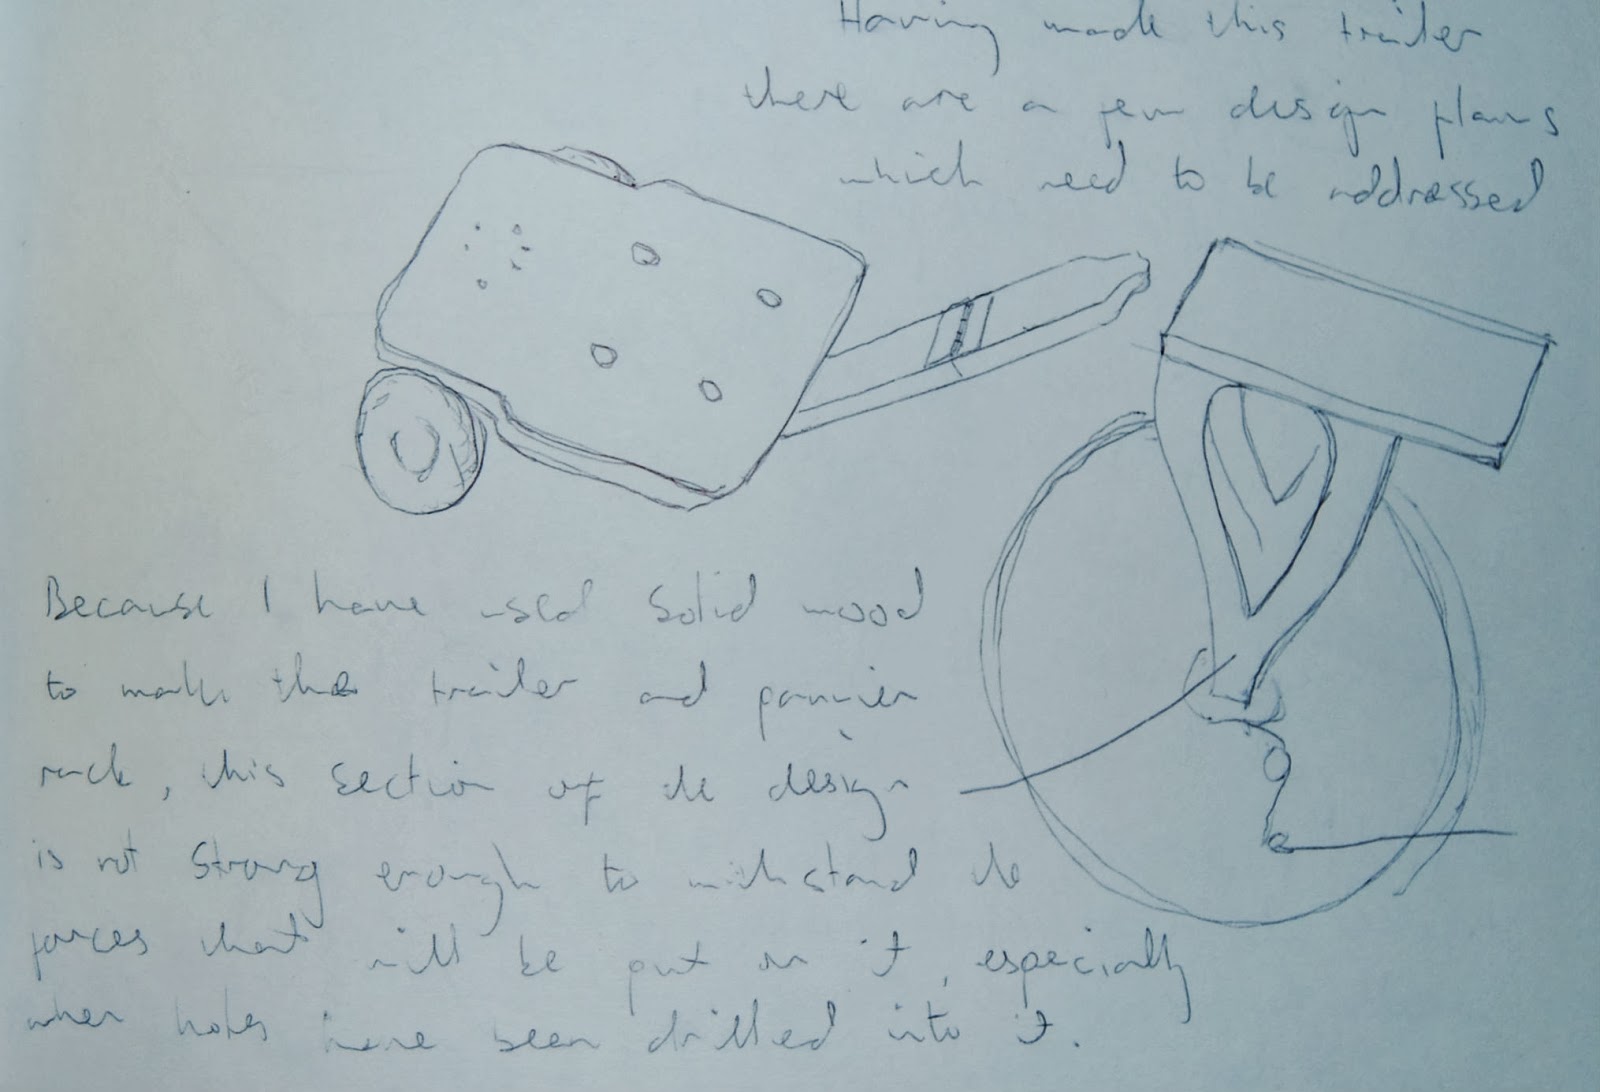 Having made this trailer
there are a few design flaws
which need to be addressed
Because I have used solid wood
to make the trailer and pannier
rack, this section of the design
is not strong enough to withstand the
forces that will be put on it, especially
when holes have been drilled into it.